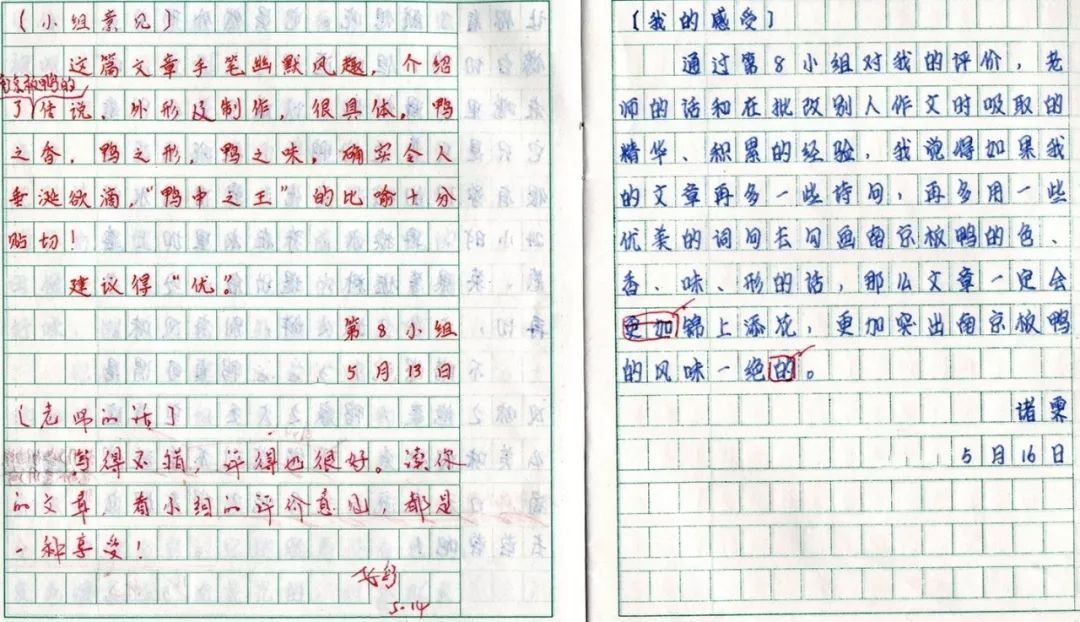 〔小组意见〕
这篇文章手笔幽默风趣，介绍
南京板鸭的
了传说、外形及制作，很具体，鸭
之香，鸭之形，鸭之味，确实令人
垂涎欲滴，“鸭中之王”的比喻十分
贴切！
建议得“优”。
第8小组
5月13日
〔老师的话〕
写得不错，评得也很好。读你
的文章，看小组的评价意见，都是
一种享受！
5.14
〔我的感受〕
通过第8小组对我的评价，老
师的话和在批改别人作文时吸取的
精华、积累的经验，我觉得如果我
的文章再多一些诗句，再多用一些
优美的词句去勾画南京板鸭的色、
香、味、形的话，那么文章一定会
更加锦上添花，更加突出南京板鸭
的风味一绝的。
诸栗
5月16日